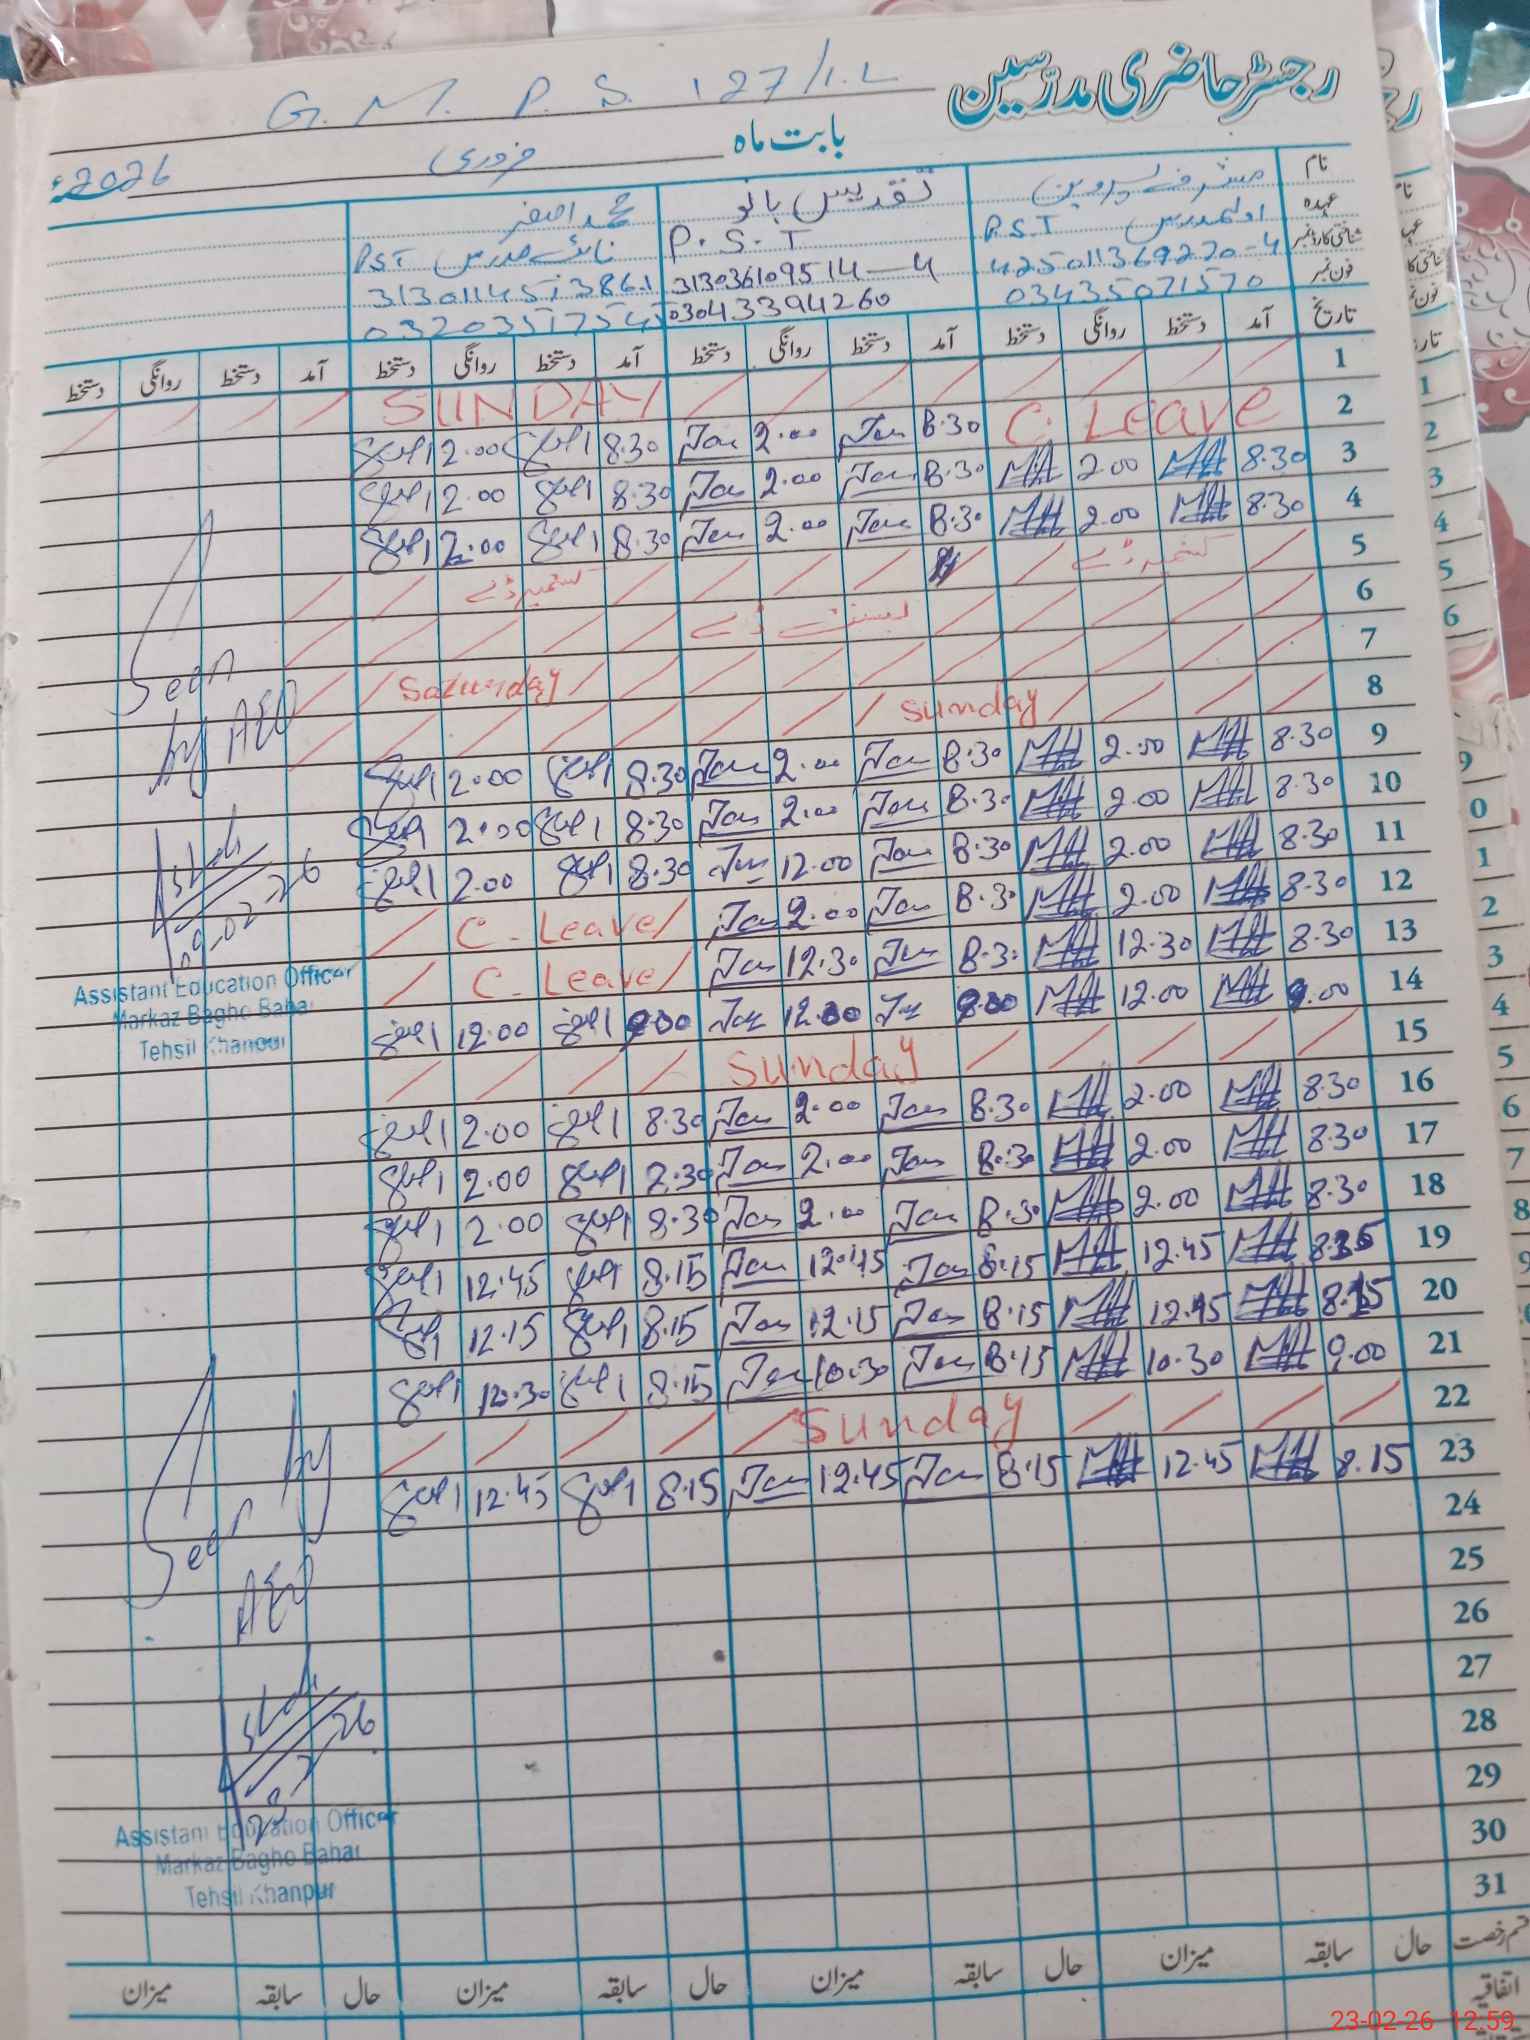 رجسٹر حاضری مدرسین
G. M. P. S. 127/1.L
بابت ماہ فروری 2026ء
نام مشرف پروین تقدیس بانو محمد اصغر
عہدہ اول مدرس P.S.T P.S.T نائب مدرس PST
شناختی کارڈ نمبر 425011369270-4 3130361095114-4
فون نمبر 03435071570 03043394260
تاریخ آمد دستخط روانگی دستخط آمد دستخط روانگی دستخط آمد دستخط روانگی دستخط آمد دستخط روانگی دستخط
1 SUNDAY
2 C. Leave 8.30 2.00 8.30 2.00
3 8.30 2.00 8.30 2.00 8.30 2.00
4 8.30 2.00 8.30 2.00 8.30 2.00
5 کشمیر ڈے کشمیر ڈے
6 بسنت ڈے
7 Saturday
8 Sunday
9 8.30 2.00 8.30 2.00 8.30 2.00
10 8.30 2.00 8.30 2.00 8.30 2.00
11 8.30 2.00 8.30 12.00 8.30 2.00
12 8.30 2.00 8.30 2.00 C. Leave
13 8.30 12.30 8.30 12.30 C. Leave
14 9.00 12.00 9.00 12.00 9.00 12.00
15 Sunday
16 8.30 2.00 8.30 2.00 8.30 2.00
17 8.30 2.00 8.30 2.00 8.30 2.00
18 8.30 2.00 8.30 2.00 8.30 2.00
19 12.45 8.15 12.45 8.15 12.45
20 8.15 12.45 8.15 12.15 8.15 12.15
21 9.00 10.30 8.15 10.30 8.15 10.30
22 Sunday
23 8.15 12.45 8.15 12.45 8.15 12.45
24
25
26
27
28
29
30
31
Seen
by AEO
09-02-26
Assistant Education Officer
Markaz Bagho Bahar
Tehsil Khanpur
Seen by
AEO
23-2-26
Assistant Education Officer
Markaz Bagho Bahar
Tehsil Khanpur
قسم رخصت حال سابقہ میزان حال سابقہ میزان حال سابقہ میزان حال سابقہ میزان
اتفاقیہ
23-02-26 12:59